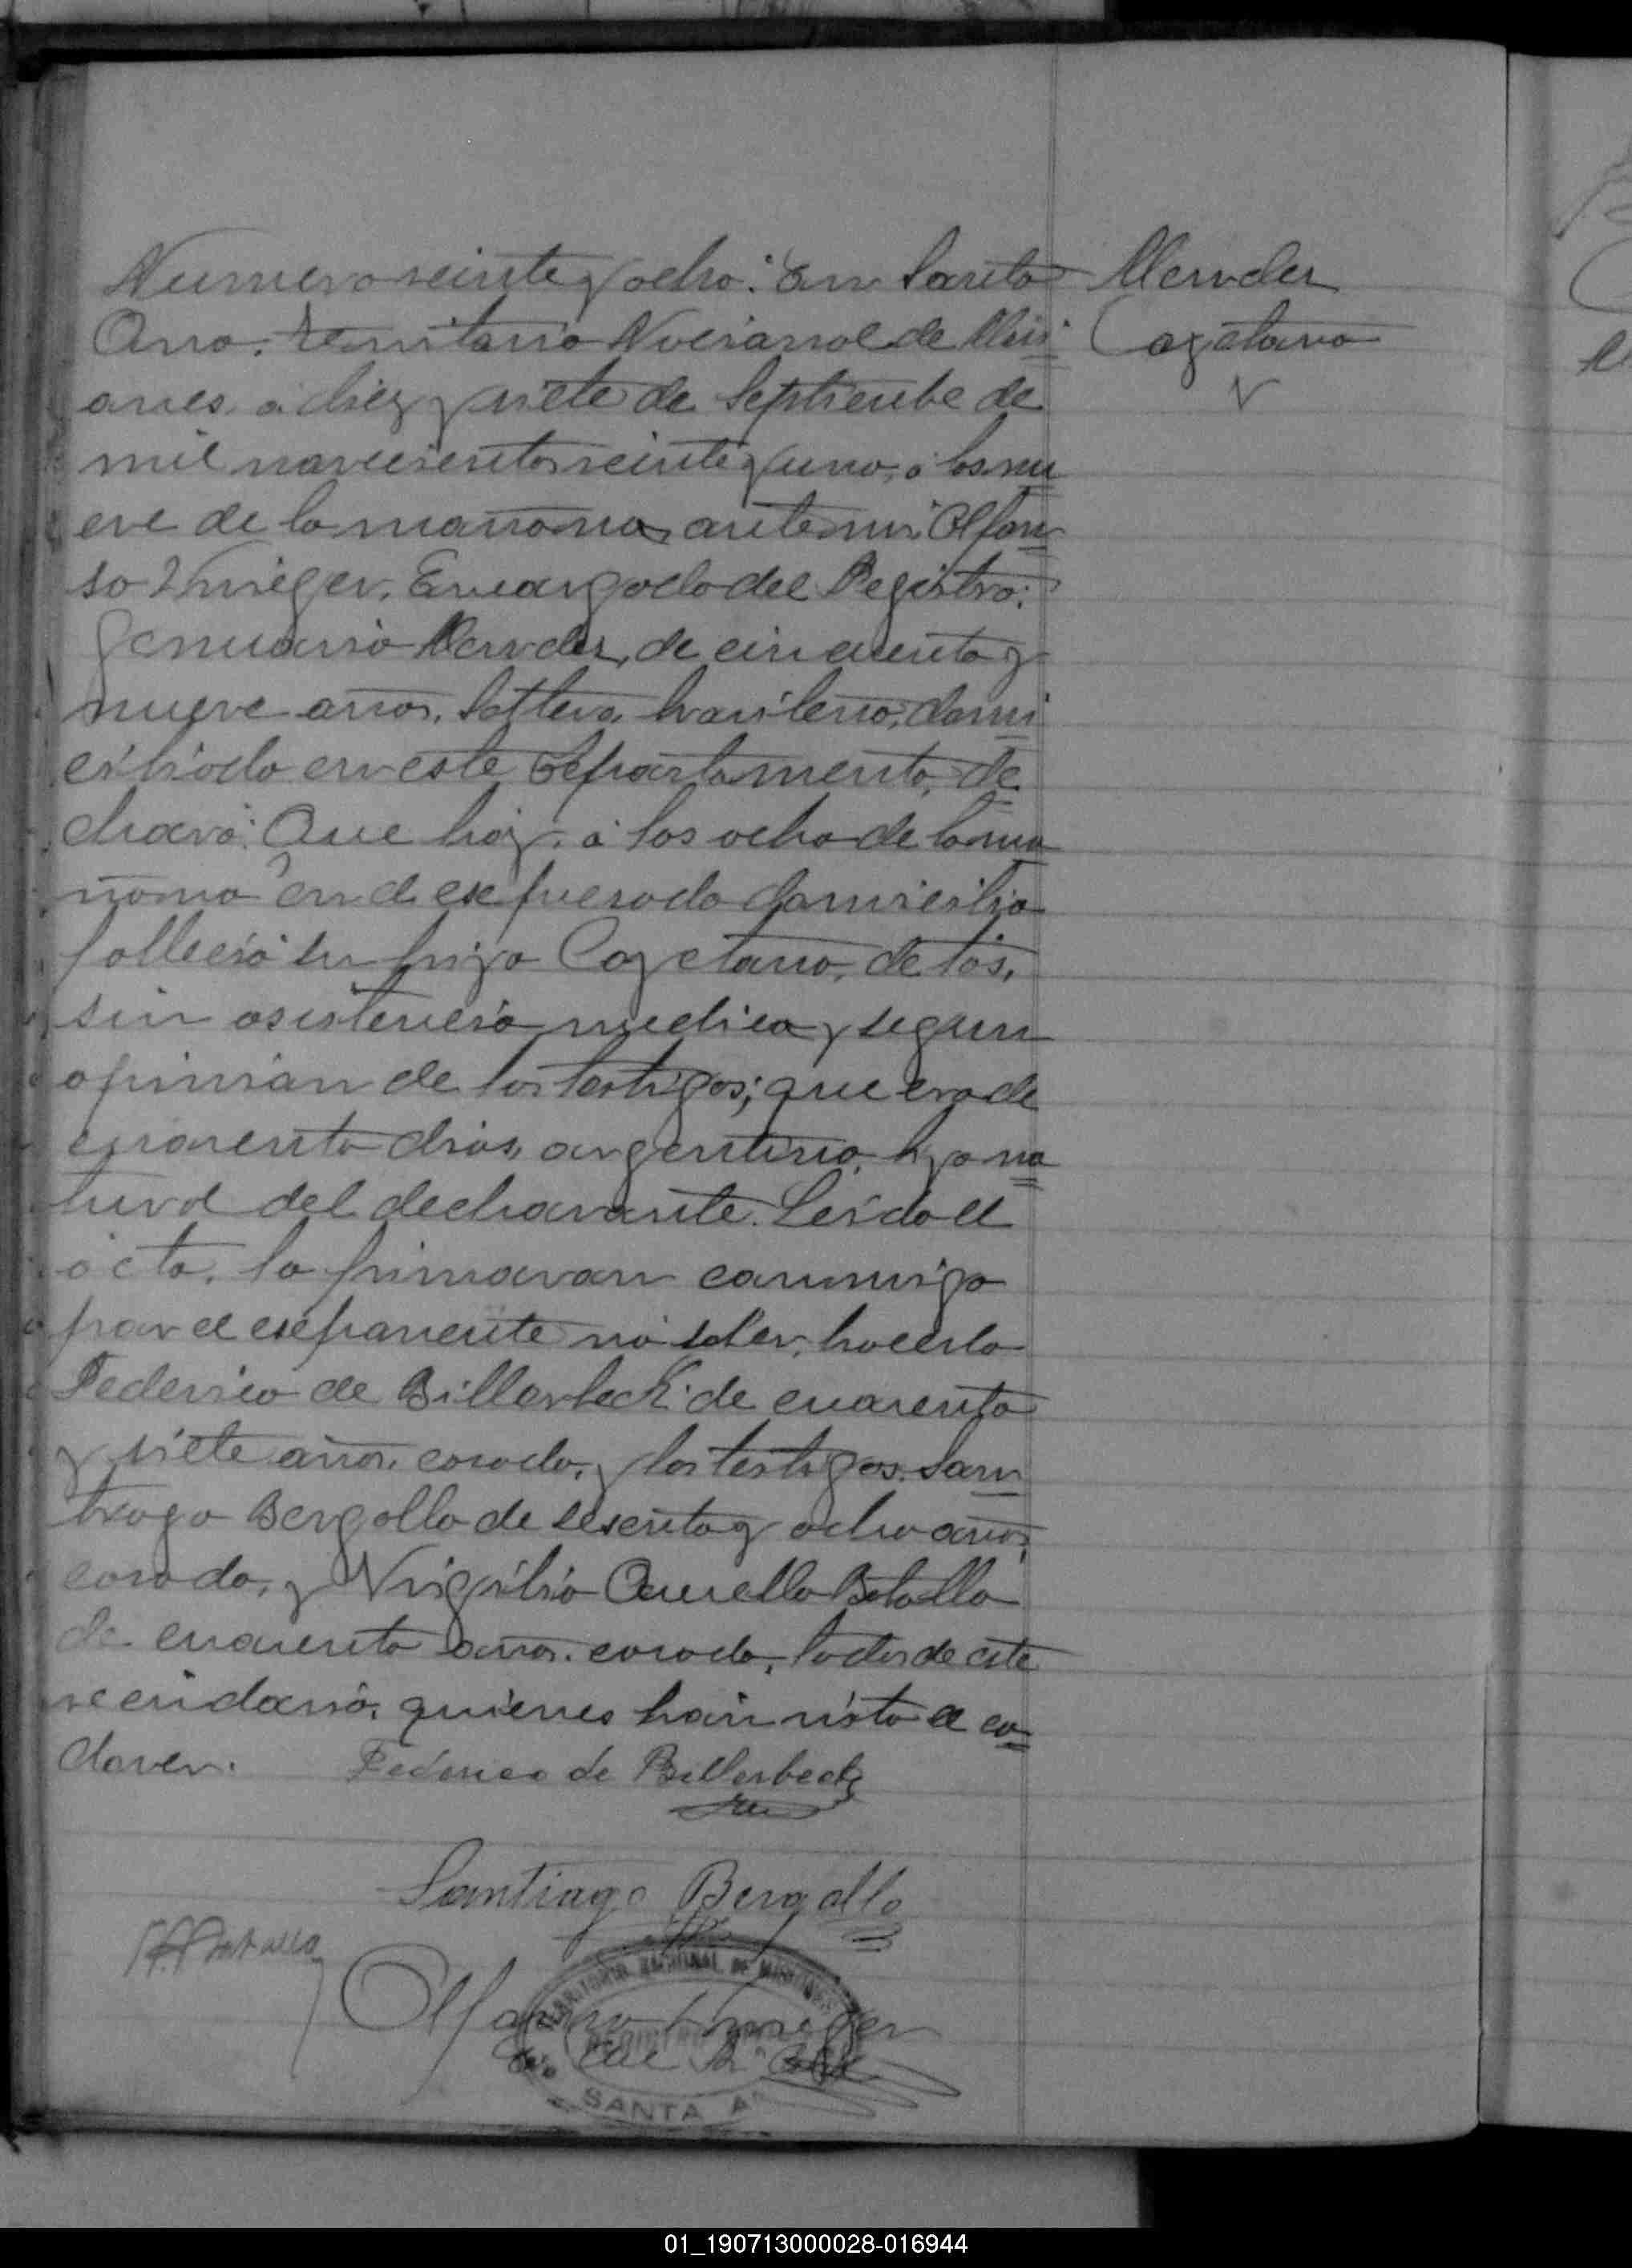 Numero veinte y ocho: En Santa
Ana, territorio Nacional de Misi
ones, a diez y siete de Septiembe de
mil novecientos veinte y uno, a las nu
eve de la mañana, ante mi Alfon
so Encargado del Registro:
Genuario Mendes, de cincuenta y
nueve años, soltero, brasilero, domi
ciliado en este Departamento, de
claró: Que hoy, a las ocho de la ma
ñana en el expresado domicilio
falleció su hijo Cayetano, de tós,
sin asistencia medica y segun
opinion de los testigos; que era de
cuarenta dias, argentino, hijo na
tural del declarante. Leída el
acta, la firmaron conmigo
por el exponente no saber hacerlo
Federico de Billerbeck de cuarenta
y siete años, casado, y los testigos San
tiago Bergallo de sesenta y ocho años,
casado, y Virgilio Botallo
de cuarenta años, casado, todos de este
vecindario, quienes han visto el ca
daver.
Federico de Billerbeck
Santiago Bergallo
Alfonso
Enc del R. Civil
TERRITORIO NACIONAL DE MISIONES
REGISTRO
SANTA A
Mendes
Cayetano
01_190713000028-016944